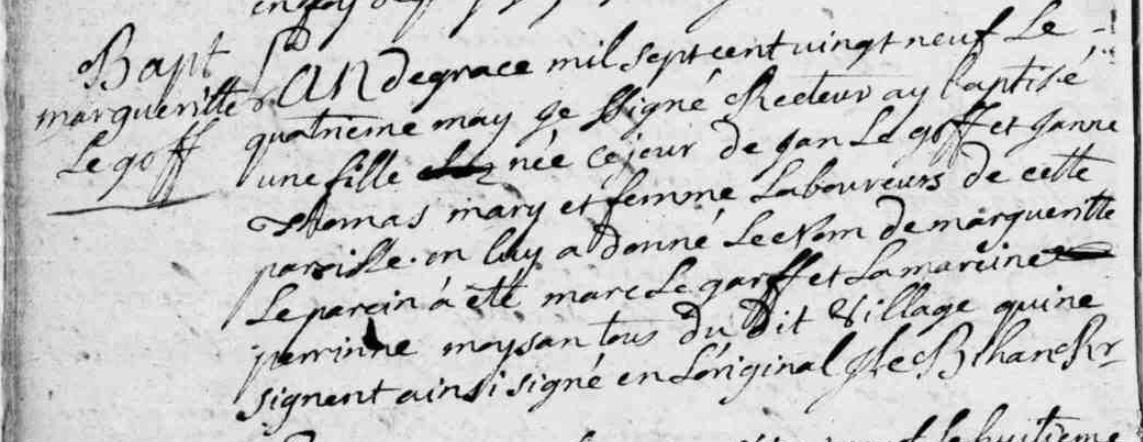 Bapt
margueritte
Le goff
L'AN de grace mil sept cent vingt neuf Le
quatrieme may je ssigné Recteur ay baptisé
une fille née ce jour de jan Le goff et janne
Thomas mary et femme Laboureurs de cette
paroisse. on luy a donné Le Nom de margueritte
Le parein á eté marc Le garff et La mareine
perrinne moysan tous du dit village qui ne
signent ainsi signé en L'original J Le Bihan Rr
huitieme